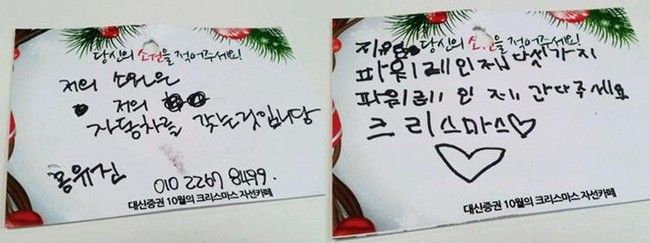 당신의 소원을 적어주세요!
저의 소원은
저의
자동차를 갖는것입니당
홍유진
010 2267 8499.
대신증권 10월의 크리스마스 자선카페
당신의 소원을 적어주세요!
파워레인저 다섯가지
파워레인저 간다주세요
크리스마스♡
대신증권 10월의 크리스마스 자선카페